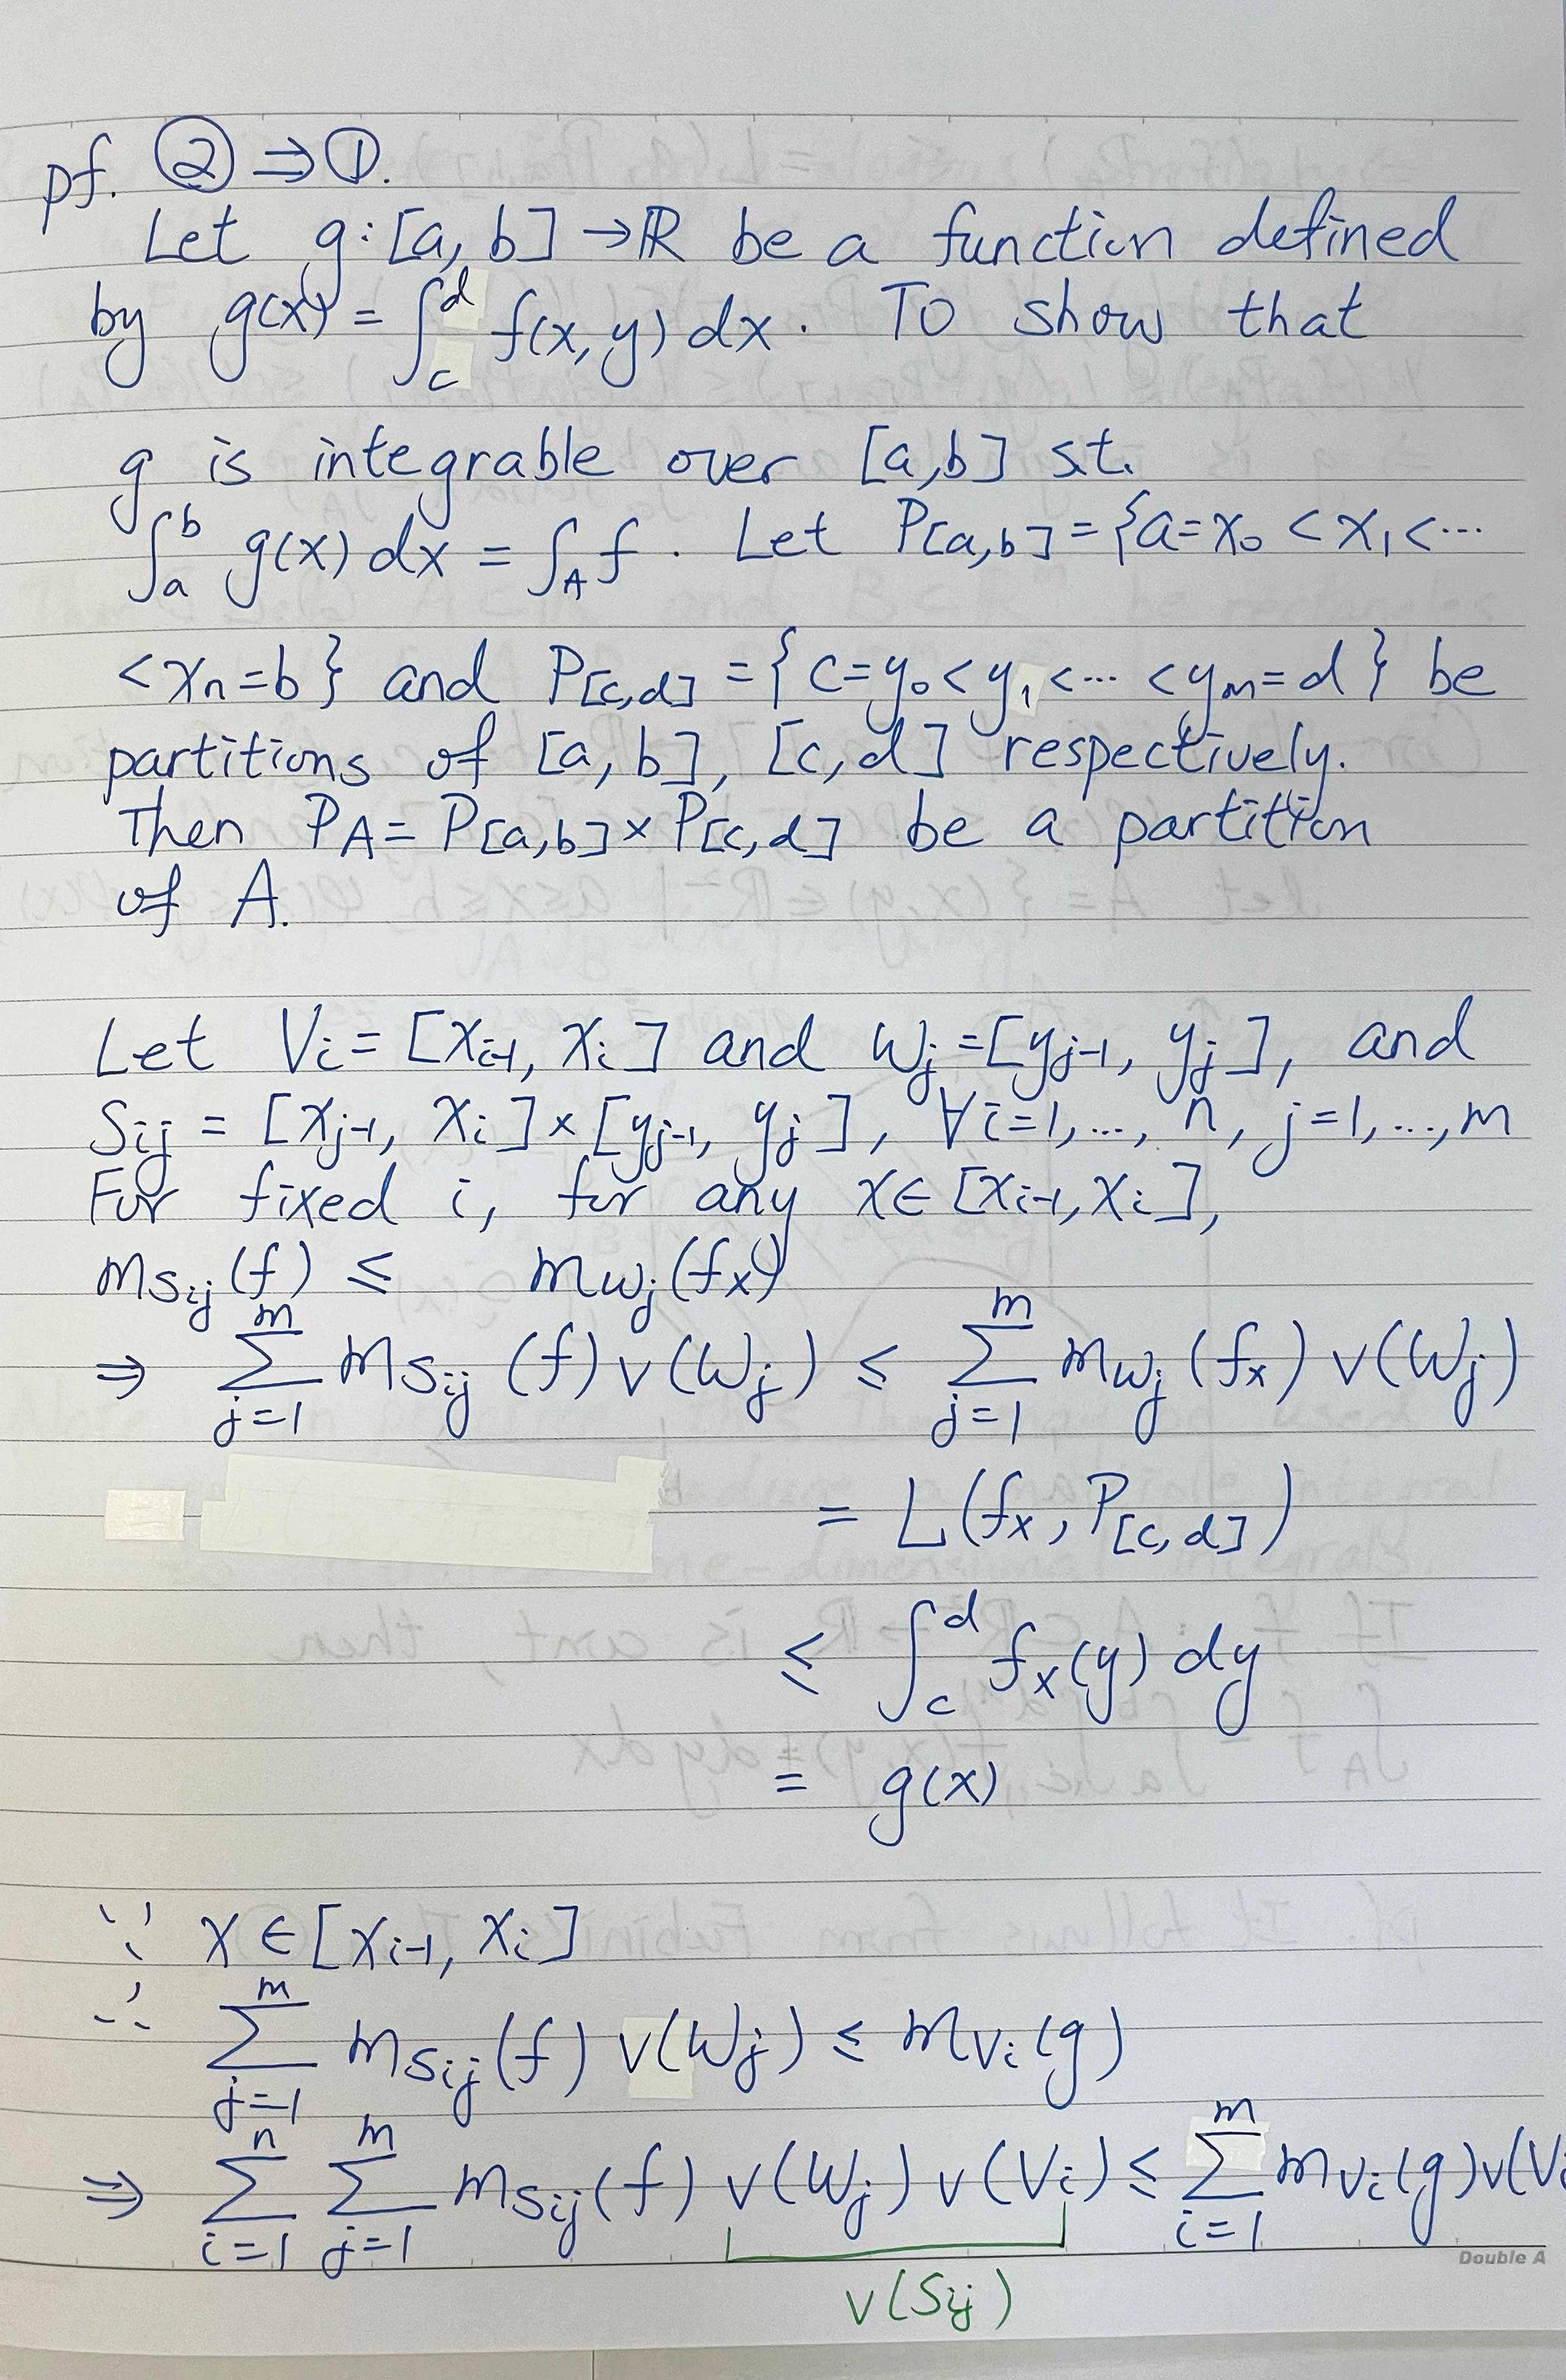 pf. ② ⇒ ①.
Let g: [a, b] → ℝ be a function defined
by g(x) = ∫_c^d f(x, y) dx. To show that
g is integrable over [a,b] s.t.
∫_a^b g(x) dx = ∫_A f. Let P_[a,b] = {a = x₀ < x₁ < ⋯
< xₙ = b} and P_[c,d] = {c = y₀ < y₁ < ⋯ < yₘ = d} be
partitions of [a, b], [c, d] respectively.
Then P_A = P_[a,b] × P_[c,d] be a partition
of A.
Let V_i = [x_{i-1}, x_i] and W_j = [y_{j-1}, y_j], and
S_ij = [x_{j-1}, x_i] × [y_{j-1}, y_j], ∀i=1,..., n, j=1,...,m
For fixed i, for any x ∈ [x_{i-1}, x_i],
m_{S_ij}(f) ≤ m_{W_j}(f_x)
⇒ ∑_{j=1}^m m_{S_ij}(f) v(W_j) ≤ ∑_{j=1}^m m_{W_j}(f_x) v(W_j)
= L(f_x, P_[c,d])
≤ ∫_c^d f_x(y) dy
= g(x)
∵ x ∈ [x_{i-1}, x_i]
∴ ∑_{j=1}^m m_{S_ij}(f) v(W_j) ≤ m_{V_i}(g)
⇒ ∑_{i=1}^n ∑_{j=1}^m m_{S_ij}(f) v(W_j) v(V_i) ≤ ∑_{i=1}^m m_{V_i}(g) v(V_i
Double A
v(S_ij)